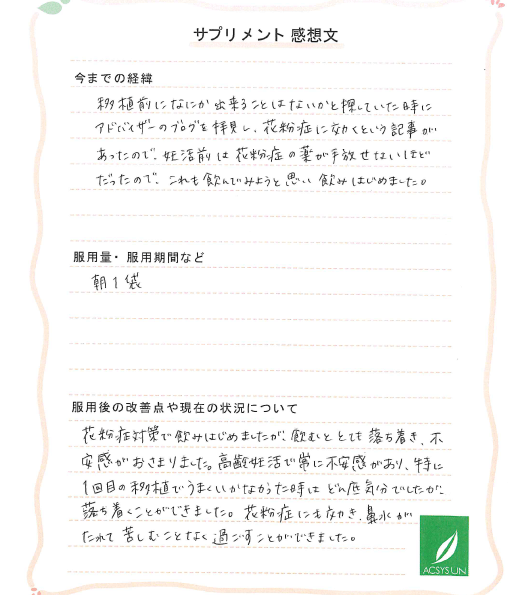 サプリメント 感想文
今までの経緯
移植前になにか出来ることはないかと探していた時に
アドバイザーのブログを拝見し、花粉症に効くという記事が
あったので、妊活前は花粉症の薬が手放せないほど
だったので、これも飲んでみようと思い飲みはじめました。
服用量・服用期間など
朝1袋
服用後の改善点や現在の状況について
花粉症対策で飲みはじめましたが、飲むととても落ち着き、不
安感がおさまりました。高齢妊活で常に不安感があり、特に
1回目の移植でうまくいかなかった時はどん底気分でしたが、
落ち着くことができました。花粉症にも効き、鼻水が
たれて苦しむことなく過ごすことができました。
ACSYSUN